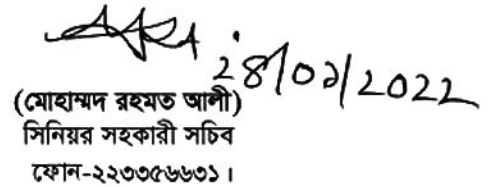 ২৪/০১/২০২২
(মোহাম্মদ রহমত আলী)
সিনিয়র সহকারী সচিব
ফোন-২২৩৩৫৬৬৩১।